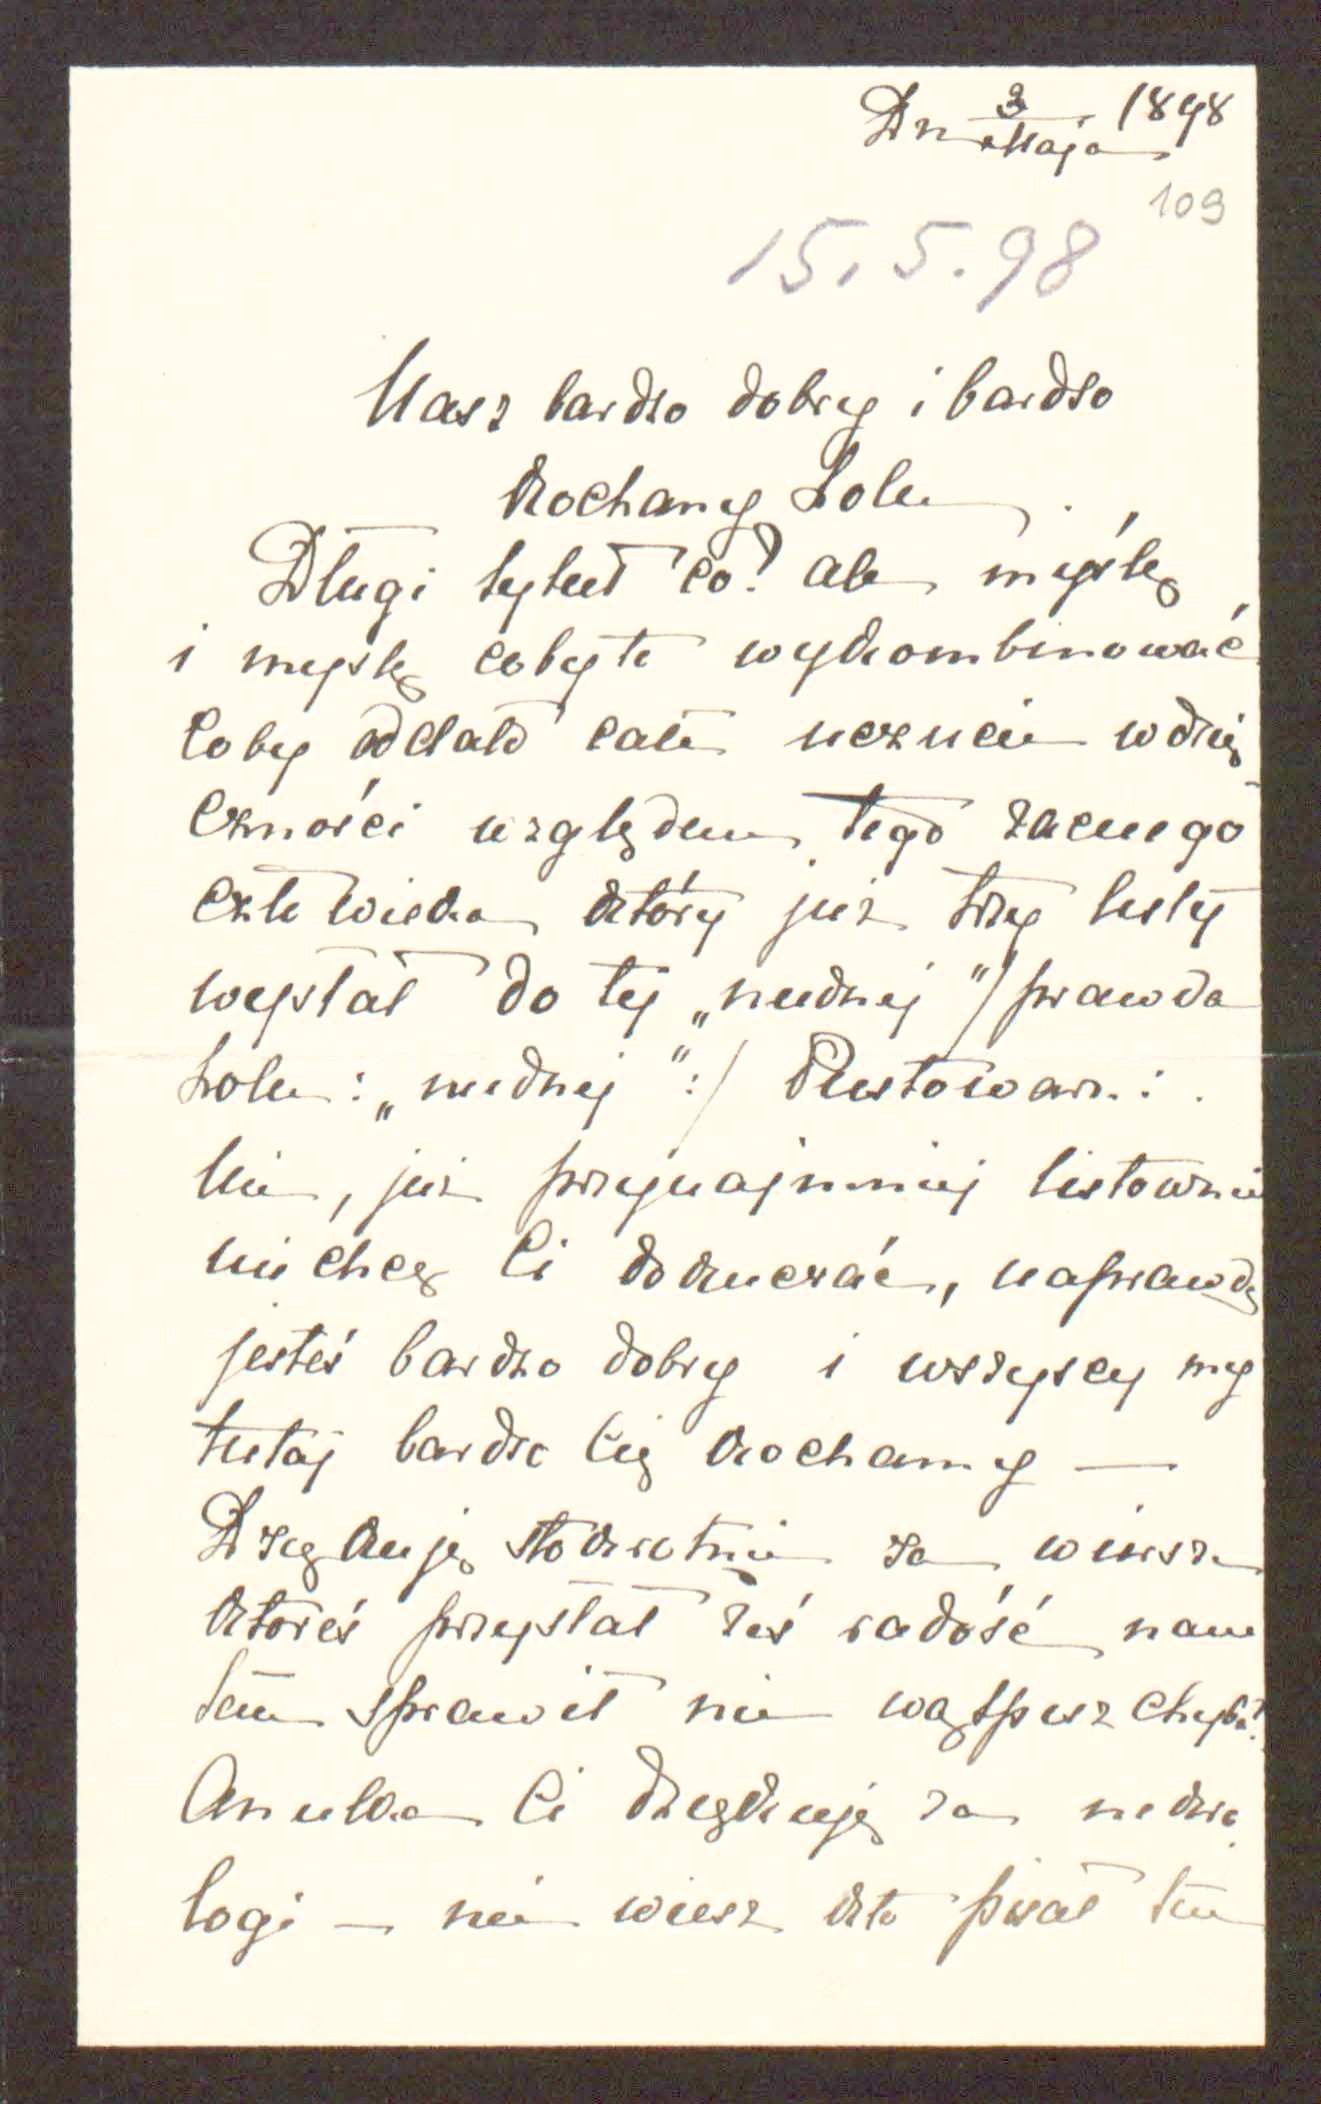 Dn 3 Maja 1898
109
15.5.98
Nasz bardzo dobry i bardzo
kochany Lolu
Długi tytuł co? ale myślę
i myślę cobyto wykombinować
coby oddało całe uczucie wdzię
czności względem tego zacnego
człowieka który już trzy listy
wysłał do tej „nudnej" / prawda
Lolu: „nudnej": / Pustowar.:
Nie, już przynajmniej listownie
nie chcę Ci dokuczać, naprawdę
jesteś bardzo dobry i wszyscy my
tutaj bardzo Cię kochamy —
Dziękuję stokrotnie za wiersze
któreś przysłał żeś radość nam
tem sprawił nie wątpisz chyba?
Anulka Ci dziękuję za nekro
logi — nie wiesz kto pisał ten